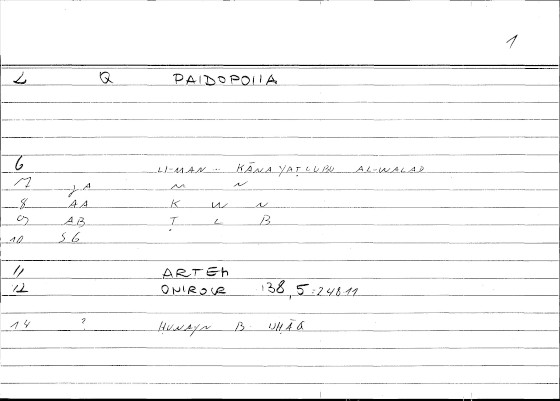 1
L Q PAIDOPOIIA
6 LI-MAN - KĀNA YAṬLUBU AL-WALAD
7 M N
8 AA K W N
9 AB Ṭ L B
10 SG
11 ARTEM
12 ONIROCR 138, 5:248 11
14 ? HUNAYN B